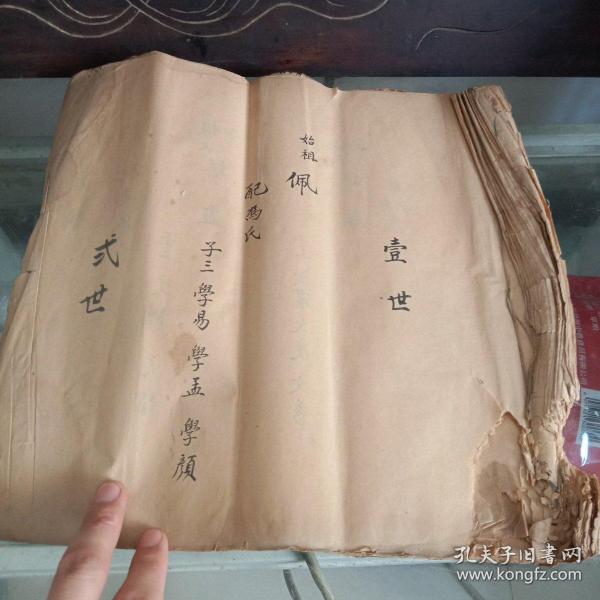 壹世
始祖佩
配馮氏
子三學易學孟學顏
弍世
孔夫子旧书网
www.kongfz.com